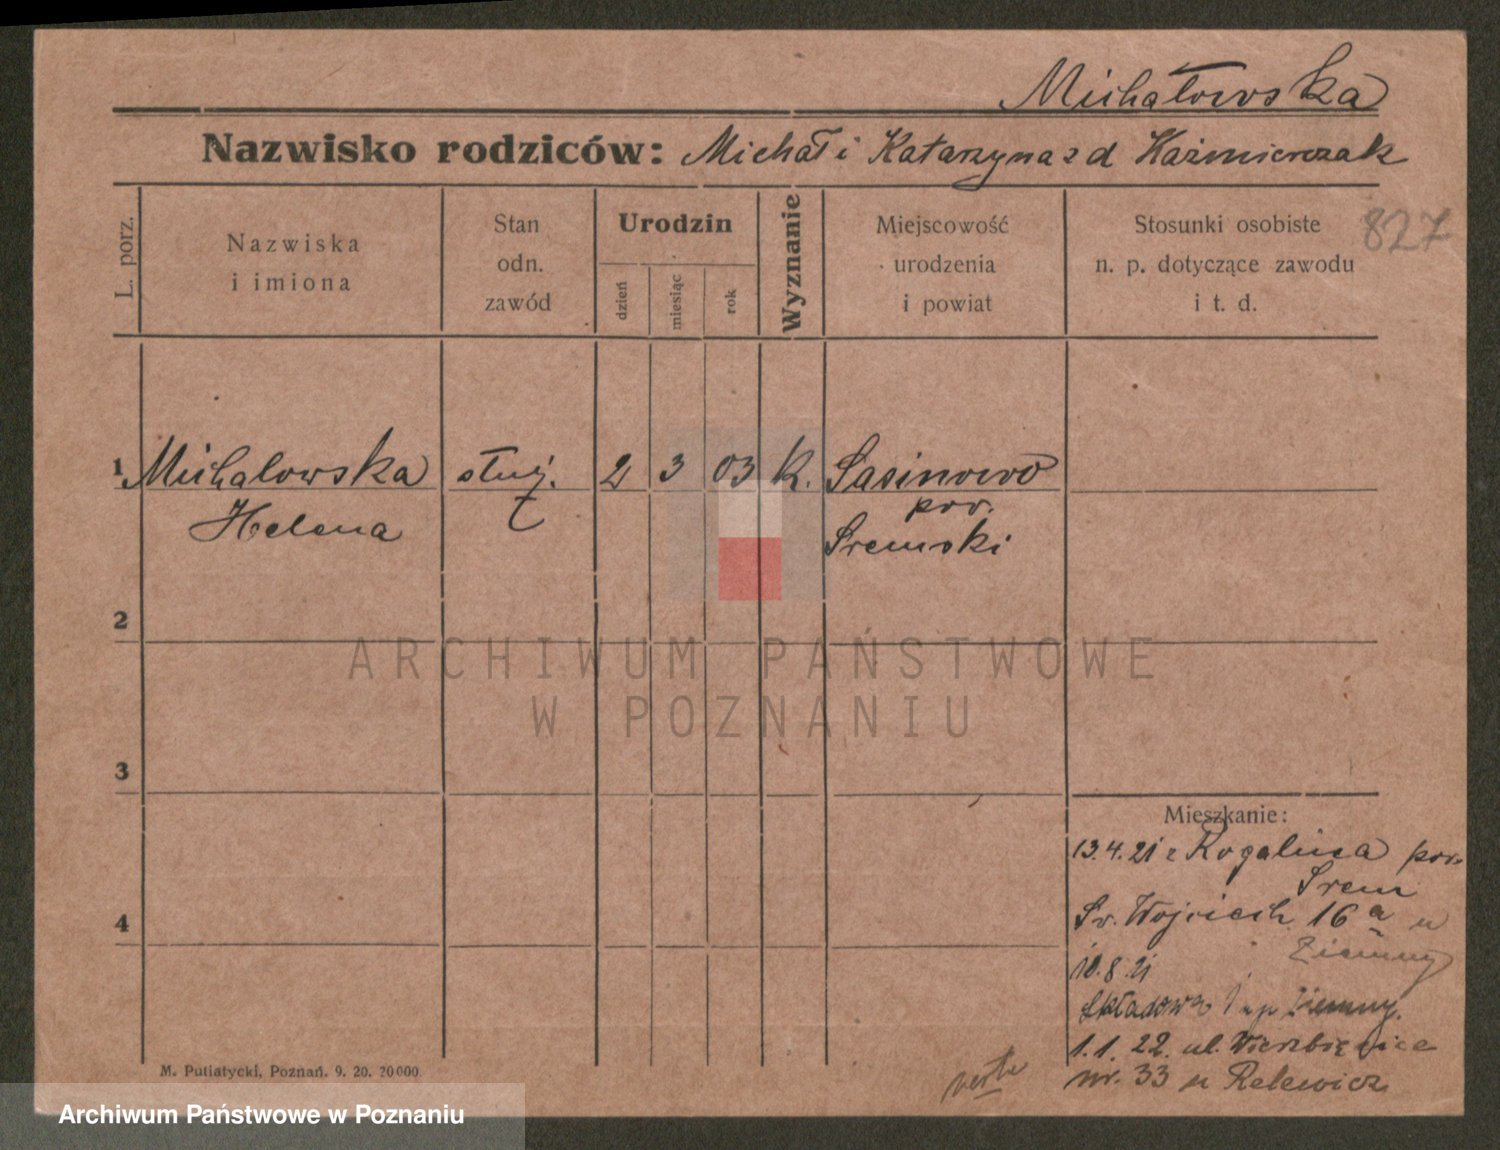 Michałowska
Nazwisko rodziców: Michał i Katarzyna z d Kaźmierczak
827
L. porz.
Nazwiska
i imiona
Stan
odn.
zawód
Urodzin
dzień
miesiąc
rok
Wyznanie
Miejscowość
urodzenia
i powiat
Stosunki osobiste
n. p. dotyczące zawodu
i t. d.
1 Michalowska służ. 2 3 03 k. Sasinowo
Helena
pow.
Sremski
2
3
4
ARCHIWUM PAŃSTWOWE
W POZNANIU
Mieszkanie:
13.4.21 z Rogalina pow.
Srem
Św. Wojciech 16 a u
Ziemny
10.8.21
Składowa Ziemny.
1.1.22. ul. Wierzbięcice
nr. 33 u Relewicz
verte
M. Putiatycki, Poznań. 9. 20. 20000.
Archiwum Państwowe w Poznaniu